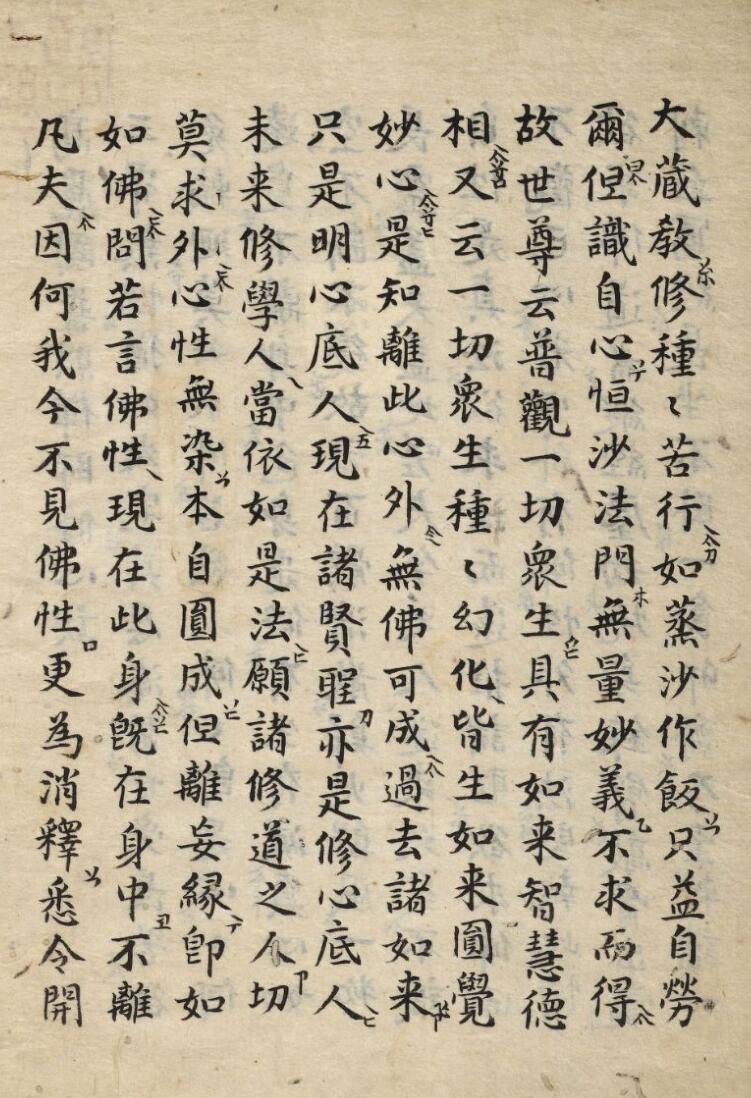 大蔵教修種〻苦行如蒸沙作飯只益自勞
爾但識自心恒沙法門無量妙義不求而得
故世尊云普觀一切衆生具有如来智慧德
相又云一切衆生種〻幻化皆生如来圓覺
妙心是知離此心外無佛可成過去諸如来
只是明心底人現在諸賢聖亦是修心底人
未来修學人當依如是法願諸修道之人切
莫求外心性無染本自圓成但離妄緣卽如
如佛問若言佛性現在此身旣在身中不離
凡夫因何我今不見佛性更為消釋悉令開